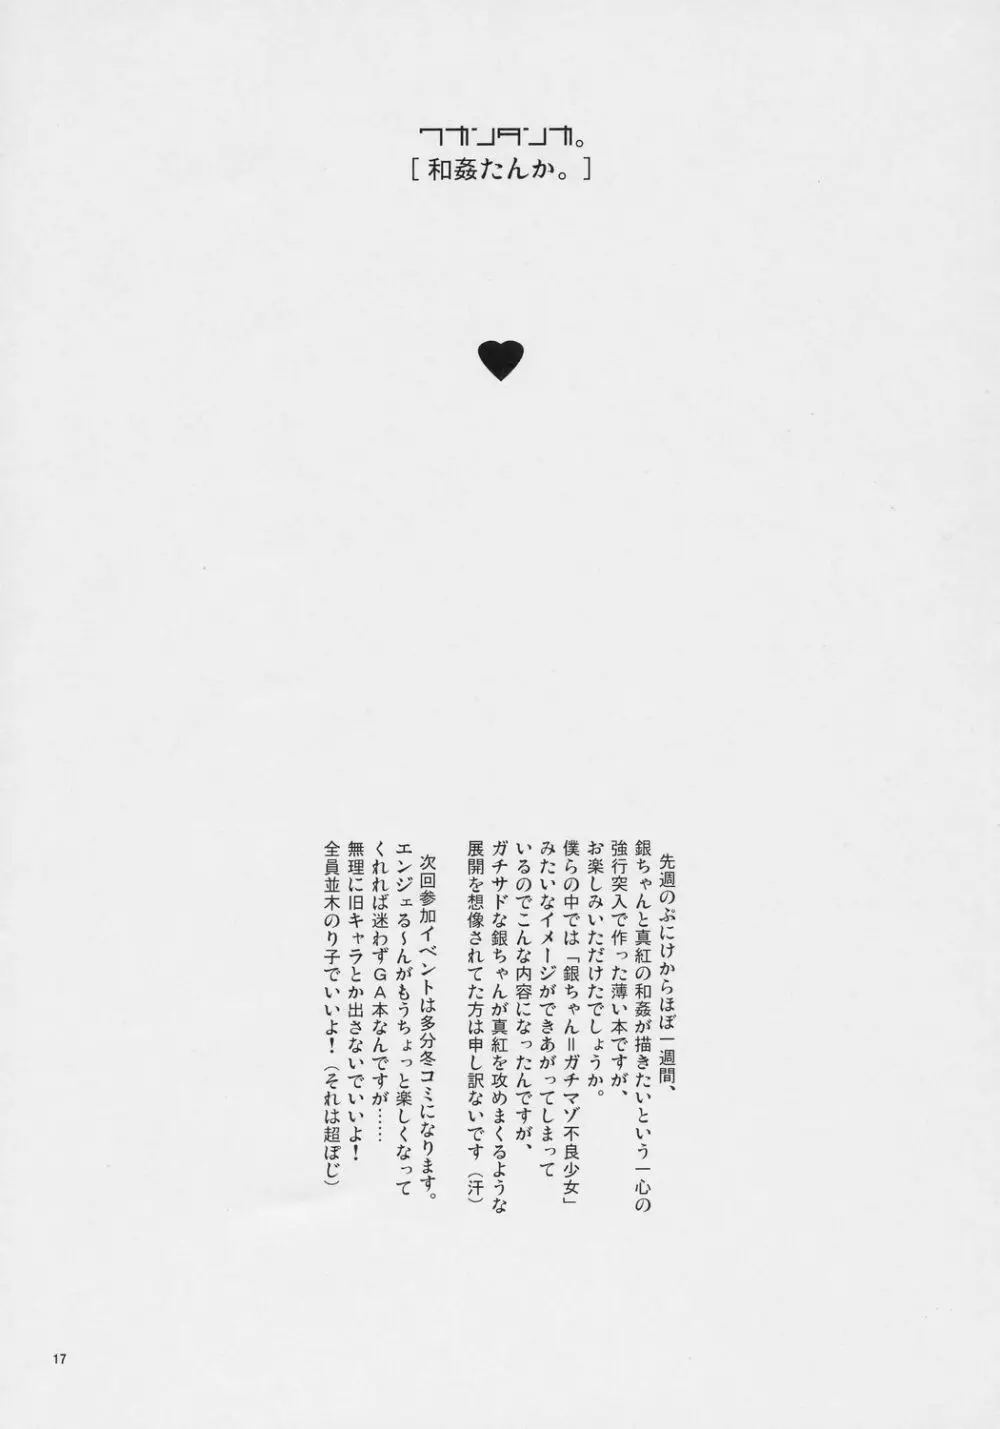 ワカンタンカ。
[和姦たんか。]
先週のぷにけからほぼ一週間、
銀ちゃんと真紅の和姦が描きたいという一心の
強行突入で作った薄い本ですが、
お楽しみいただけたでしょうか。
僕らの中では「銀ちゃん＝ガチマゾ不良少女」
みたいなイメージができあがってしまって
いるのでこんな内容になったんですが、
ガチサドな銀ちゃんが真紅を攻めまくるような
展開を想像されてた方は申し訳ないです（汗）
次回参加イベントは多分冬コミになります。
エンジェる～んがもうちょっと楽しくなって
くれれば迷わずGA本なんですが……
無理に旧キャラとか出さないでいいよ！
全員並木のり子でいいよ！（それは超ぽじ）
17